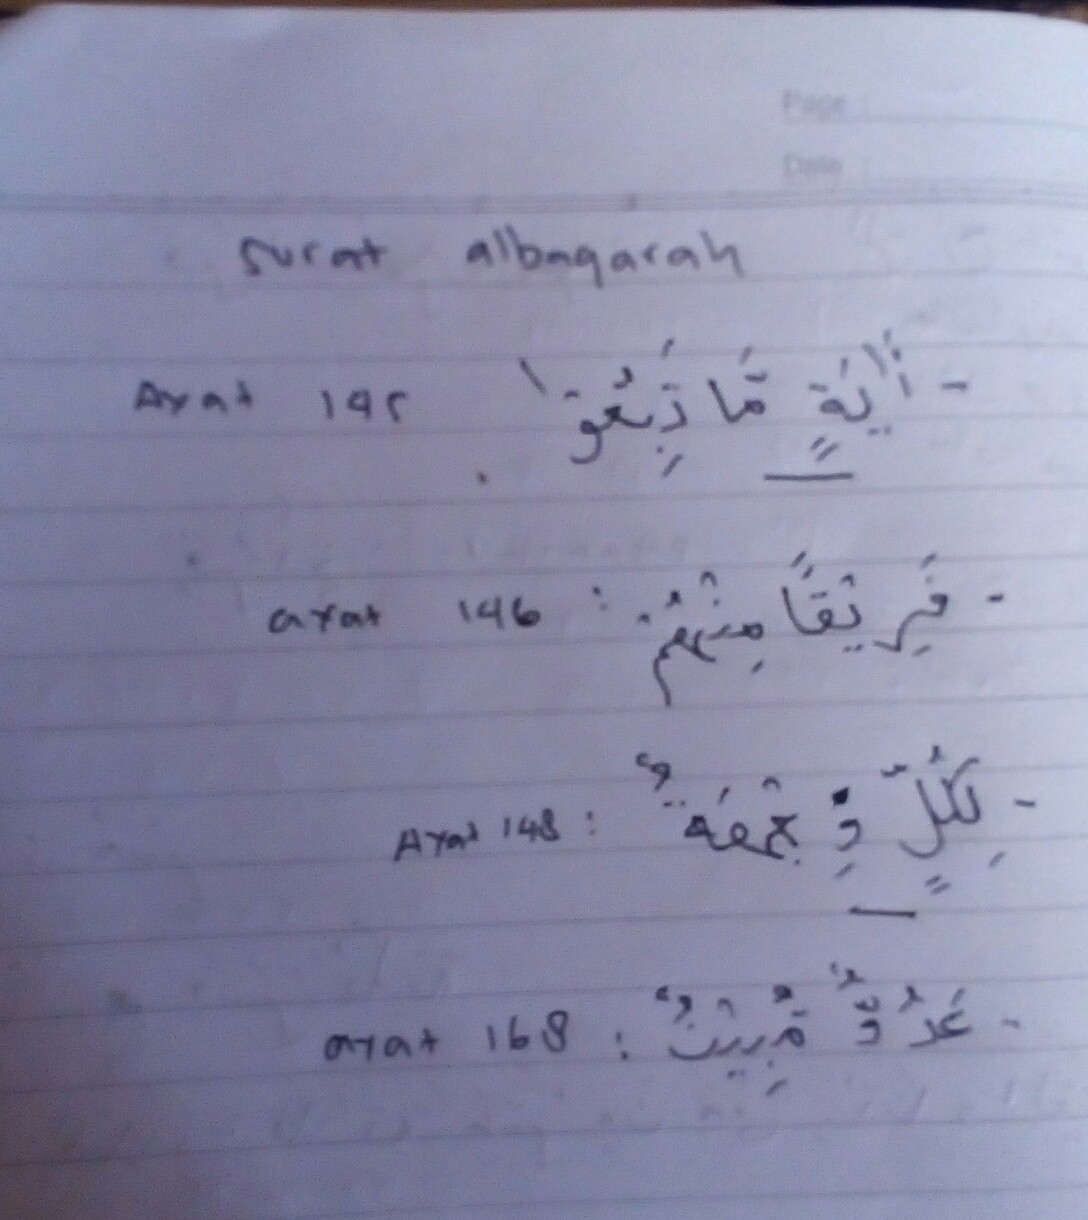 Page :
Date :
surat albaqarah
- أٰيَةٍ مَّا تَبِعُوْا Ayat 145
- فَرِيْقًا مِنْهُمْ : ayat 146
- لِكُلٍّ وِّجْهَةٌ : Ayat 148
- عَدُوٌّ مُّبِيْنٌ : ayat 168